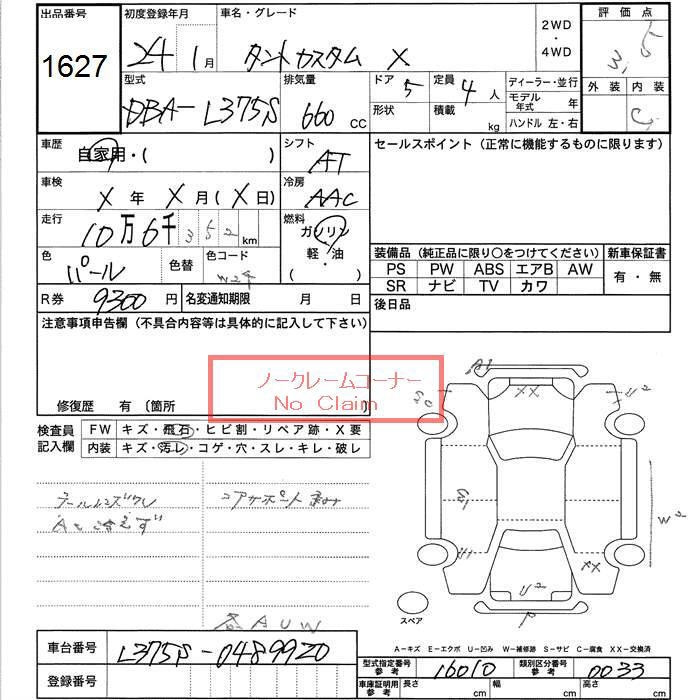 出品番号
1627
初度登録年月
24 1月
車名・グレード
タントカスタム X
2WD
・
4WD
評価点
3.5
外装 内装
C
型式
DBA-L375S
排気量
660 CC
ドア
5
形状
定員
4人
積載
kg
ディーラー・並行
モデル年式 年
ハンドル 左・右
車歴
自家用・( )
シフト
AT
車検
X年 X月(X日)
冷房
AAC
走行
10万6千352km
燃料
ガソリン
軽・油
( )
色
パール
色替
色コード
W24
R券
9300円
名変通知期限 月 日
セールスポイント(正常に機能するものに限ります)
装備品(純正品に限り○をつけてください)
PS PW ABS エアB AW
SR ナビ TV カワ
新車保証書
有・無
後日品
注意事項申告欄(不具合内容等は具体的に記入して下さい)
修復歴 有 〔箇所
ノークレームコーナー
No Claim
検査員記入欄
FW キズ・飛石・ヒビ割・リペア跡・X要
内装 キズ・汚レ・コゲ・穴・スレ・キレ・破レ
コアサポート
各AUW
A1
XX
U2
W2
XX
U2
P
スペア
A-キズ E-エクボ U-凹み W-補修跡 S-サビ C-腐食 XX-交換済
車台番号
L375S-0489920
登録番号
型式指定番号 参考
16010
類別区分番号 参考
0033
車庫証明用 参考
長さ cm
幅 cm
高さ cm